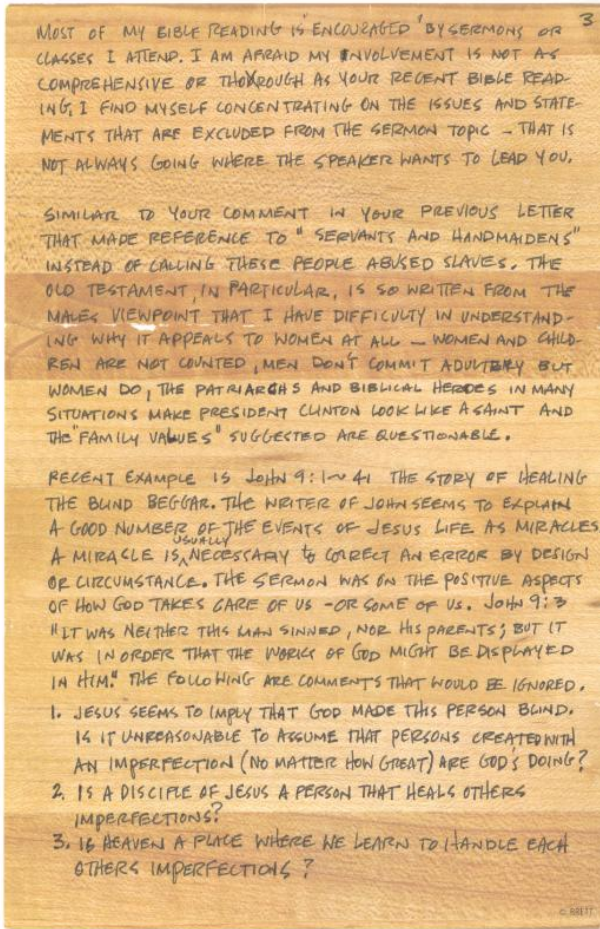 3
MOST OF MY BIBLE READING IS "ENCOURAGED" BY SERMONS OR
CLASSES I ATTEND. I AM AFRAID MY INVOLVEMENT IS NOT AS
COMPREHENSIVE OR THOROUGH AS YOUR RECENT BIBLE READ-
ING, I FIND MYSELF CONCENTRATING ON THE ISSUES AND STATE-
MENTS THAT ARE EXCLUDED FROM THE SERMON TOPIC – THAT IS
NOT ALWAYS GOING WHERE THE SPEAKER WANTS TO LEAD YOU.
SIMILAR TO YOUR COMMENT IN YOUR PREVIOUS LETTER
THAT MADE REFERENCE TO "SERVANTS AND HANDMAIDENS"
INSTEAD OF CALLING THESE PEOPLE ABUSED SLAVES. THE
OLD TESTAMENT, IN PARTICULAR, IS SO WRITTEN FROM THE
MALES VIEWPOINT THAT I HAVE DIFFICULTY IN UNDERSTAND-
ING WHY IT APPEALS TO WOMEN AT ALL – WOMEN AND CHILD-
REN ARE NOT COUNTED, MEN DON'T COMMIT ADULTERY BUT
WOMEN DO, THE PATRIARCHS AND BIBLICAL HEROES IN MANY
SITUATIONS MAKE PRESIDENT CLINTON LOOK LIKE A SAINT AND
THE "FAMILY VALUES" SUGGESTED ARE QUESTIONABLE.
RECENT EXAMPLE IS JOHN 9:1~41 THE STORY OF HEALING
THE BLIND BEGGAR. THE WRITER OF JOHN SEEMS TO EXPLAIN
A GOOD NUMBER OF THE EVENTS OF JESUS LIFE AS MIRACLES
A MIRACLE IS USUALLY NECESSARY to CORRECT AN ERROR BY DESIGN
OR CIRCUMSTANCE. THE SERMON WAS ON THE POSITIVE ASPECTS
OF HOW GOD TAKES CARE OF US – OR SOME OF US. JOHN 9:3
"IT WAS NEITHER THIS MAN SINNED, NOR HIS PARENTS; BUT IT
WAS IN ORDER THAT THE WORKS OF GOD MIGHT BE DISPLAYED
IN HIM." THE FOLLOWING ARE COMMENTS THAT WOULD BE IGNORED.
1. JESUS SEEMS TO IMPLY THAT GOD MADE THIS PERSON BLIND.
IS IT UNREASONABLE TO ASSUME THAT PERSONS CREATED WITH
AN IMPERFECTION (NO MATTER HOW GREAT) ARE GOD'S DOING?
2. IS A DISCIPLE OF JESUS A PERSON THAT HEALS OTHERS
IMPERFECTIONS?
3. IS HEAVEN A PLACE WHERE WE LEARN TO HANDLE EACH
OTHERS IMPERFECTIONS?
© BRETT